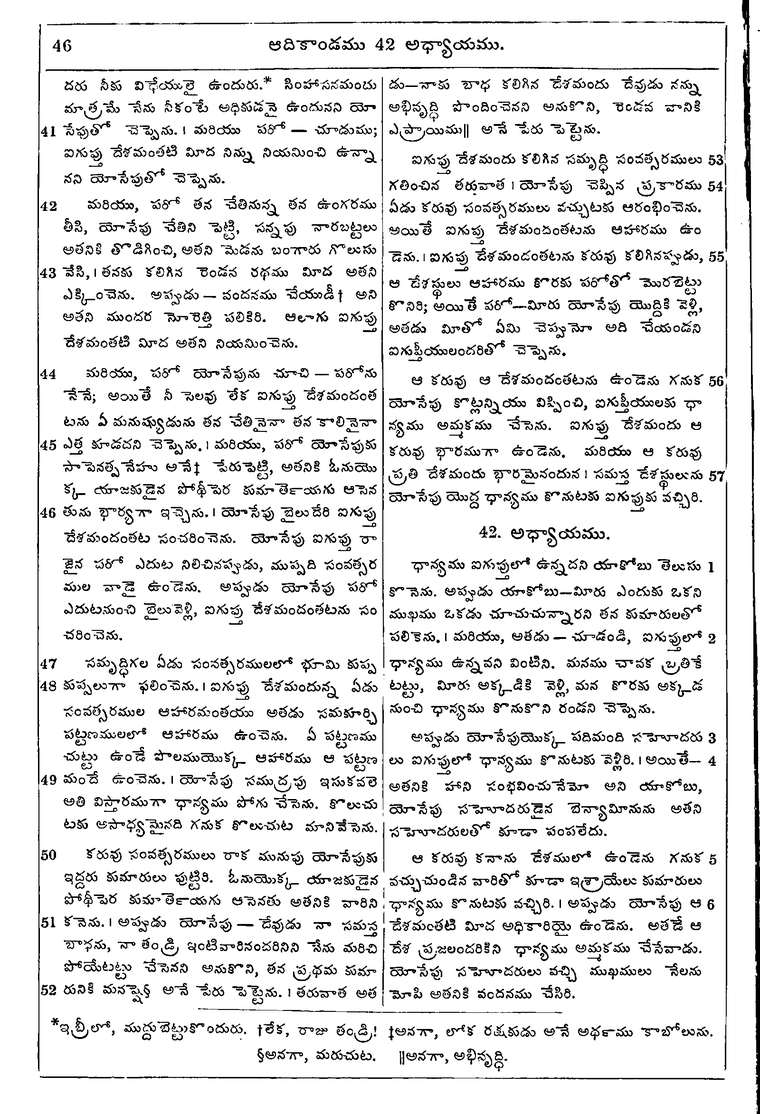 46 ఆదికాండము 42 అధ్యాయము.
దరు నీకు విధేయులై ఉందురు.* సింహాసనమందు
మాత్రమే నేను నీకంటే అధికుడనై ఉందునని యో
41 సేపుతో చెప్పెను. । మరియు పరో — చూడుము;
ఐగుప్తు దేశమంతటి మీద నిన్ను నియమించి ఉన్నా
నని యోసేపుతో చెప్పెను.
42 మరియు, పరో తన చేతినున్న తన ఉంగరము
తీసి, యోసేపు చేతిని పెట్టి, సన్నపు నారబట్టలు
అతనికి తొడిగించి, అతని మెడను బంగారు గొలుసు
43 వేసి, । తనకు కలిగిన రెండన రథము మీద అతని
ఎక్కించెను. అప్పుడు — వందనము చేయుడీ† అని
అతని ముందర నోరెత్తి పలికిరి. ఆలాగు ఐగుప్తు
దేశమంతటి మీద అతని నియమించెను.
44 మరియు, పరో యోసేపును చూచి — పరోను
నేనే; అయితే నీ సెలవు లేక ఐగుప్తు దేశమందంత
టను ఏ మనుష్యుడును తన చేతినైనా తన కాలినైనా
45 ఎత్త కూడదని చెప్పెను. । మరియు, పరో యోసేపుకు
సాపెనత్పనేహు అనే‡ పేరుపెట్టి, అతనికి ఓనుయొ
క్క యాజకుడైన పోథీఫెర కుమార్తెయగు ఆసెన
46 తును భార్యగా ఇచ్చెను. । యోసేపు బైలుదేరి ఐగుప్తు
దేశమందంతట సంచరించెను. యోసేపు ఐగుప్తు రా
జైన పరో ఎదుట నిలిచినప్పుడు, ముప్పది సంవత్సర
ముల వాడై ఉండెను. అప్పుడు యోసేపు పరో
ఎదుటనుంచి బైలువెళ్లి, ఐగుప్తు దేశమందంతటను సం
చరించెను.
47 సమృద్ధిగల ఏడు సంవత్సరములలో భూమి కుప్ప
48 కుప్పలుగా ఫలించెను. । ఐగుప్తు దేశమందున్న ఏడు
సంవత్సరముల ఆహారమంతయు అతడు సమకూర్చి
పట్టణములలో ఆహారము ఉంచెను. ఏ పట్టణము
చుట్టు ఉండే పొలముయొక్క ఆహారము ఆ పట్టణ
49 మందే ఉంచెను. । యోసేపు సముద్రపు ఇసుకవలె
అతి విస్తారముగా ధాన్యము పోగు చేసెను. కొలుచు
టకు అసాధ్యమైనది గనుక కొలుచుట మానివేసెను.
50 కరువు సంవత్సరములు రాక మునుపు యోసేపుకు
ఇద్దరు కుమారులు పుట్టిరి. ఓనుయొక్క యాజకుడైన
పోథీఫెర కుమార్తెయగు ఆసెనతు అతనికి వారిని
51 కనెను. । అప్పుడు యోసేపు — దేవుడు నా సమస్త
బాధను, నా తండ్రి ఇంటివారినందరినిని నేను మరిచి
పోయేటట్టు చేసెనని అనుకొని, తన ప్రథమ కుమా
52 రునికి మనష్షె§ అనే పేరు పెట్టెను. । తరువాత అత
డు—నాకు బాధ కలిగిన దేశమందు దేవుడు నన్ను
అభివృద్ధి పొందించెనని అనుకొని, రెండవ వానికి
ఎఫ్రాయిము|| అనే పేరు పెట్టెను.
ఐగుప్తు దేశమందు కలిగిన సమృద్ధి సంవత్సరములు 53
గతించిన తరువాత । యోసేపు చెప్పిన ప్రకారము 54
ఏడు కరువు సంవత్సరములు వచ్చుటకు ఆరంభించెను.
అయితే ఐగుప్తు దేశమందంతటను ఆహారము ఉం
డెను. । ఐగుప్తు దేశమందంతటను కరువు కలిగినప్పుడు, 55
ఆ దేశస్థులు ఆహారము కొరకు పరోతో మొరబెట్టు
కొనిరి; అయితే పరో—మీరు యోసేపు యొద్దికి వెళ్లి,
అతడు మీతో ఏమి చెప్పునో అది చేయండని
ఐగుప్తీయులందరితో చెప్పెను.
ఆ కరువు ఆ దేశమందంతటను ఉండెను గనుక 56
యోసేపు కొట్లన్నియు విప్పించి, ఐగుప్తీయులకు ధా
న్యము అమ్మకము చేసెను. ఐగుప్తు దేశమందు ఆ
కరువు భారముగా ఉండెను. మరియు ఆ కరువు
ప్రతి దేశమందు భారమైనందున । సమస్త దేశస్థులును 57
యోసేపు యొద్ద ధాన్యము కొనుటకు ఐగుప్తుకు వచ్చిరి.
42. అధ్యాయము.
ధాన్యము ఐగుప్తులో ఉన్నదని యాకోబు తెలుసు 1
కొనెను. అప్పుడు యాకోబు—మీరు ఎందుకు ఒకని
ముఖము ఒకడు చూచుచున్నారని తన కుమారులతో
పలికెను. । మరియు, అతడు — చూడండి, ఐగుప్తులో 2
ధాన్యము ఉన్నవని వింటిని. మనము చావక బ్రతికే
టట్టు, మీరు అక్కడికి వెళ్లి, మన కొరకు అక్కడ
నుంచి ధాన్యము కొనుకొని రండని చెప్పెను.
అప్పుడు యోసేపుయొక్క పదిమంది సహోదరు 3
లు ఐగుప్తులో ధాన్యము కొనుటకు వెళ్లిరి. । అయితే— 4
అతనికి హాని సంభవించునేమో అని యాకోబు,
యోసేపు సహోదరుడైన బెన్యామీనును అతని
సహోదరులతో కూడా పంపలేదు.
ఆ కరువు కనాను దేశములో ఉండెను గనుక 5
వచ్చుచుండిన వారితో కూడా ఇశ్రాయేలు కుమారులు
ధాన్యము కొనుటకు వచ్చిరి. । అప్పుడు యోసేపు ఆ 6
దేశమంతటి మీద అధికారియై ఉండెను. అతడే ఆ
దేశ ప్రజలందరికిని ధాన్యము అమ్మకము చేసేవాడు.
యోసేపు సహోదరులు వచ్చి ముఖములు నేలను
మోపి అతనికి వందనము చేసిరి.
*ఇబ్రీలో, ముద్దుబెట్టుకొందురు. †లేక, రాజు తండ్రి! ‡అనగా, లోక రక్షకుడు అనే అర్థము కాబోలును.
§అనగా, మరుచుట. ||అనగా, అభివృద్ధి.